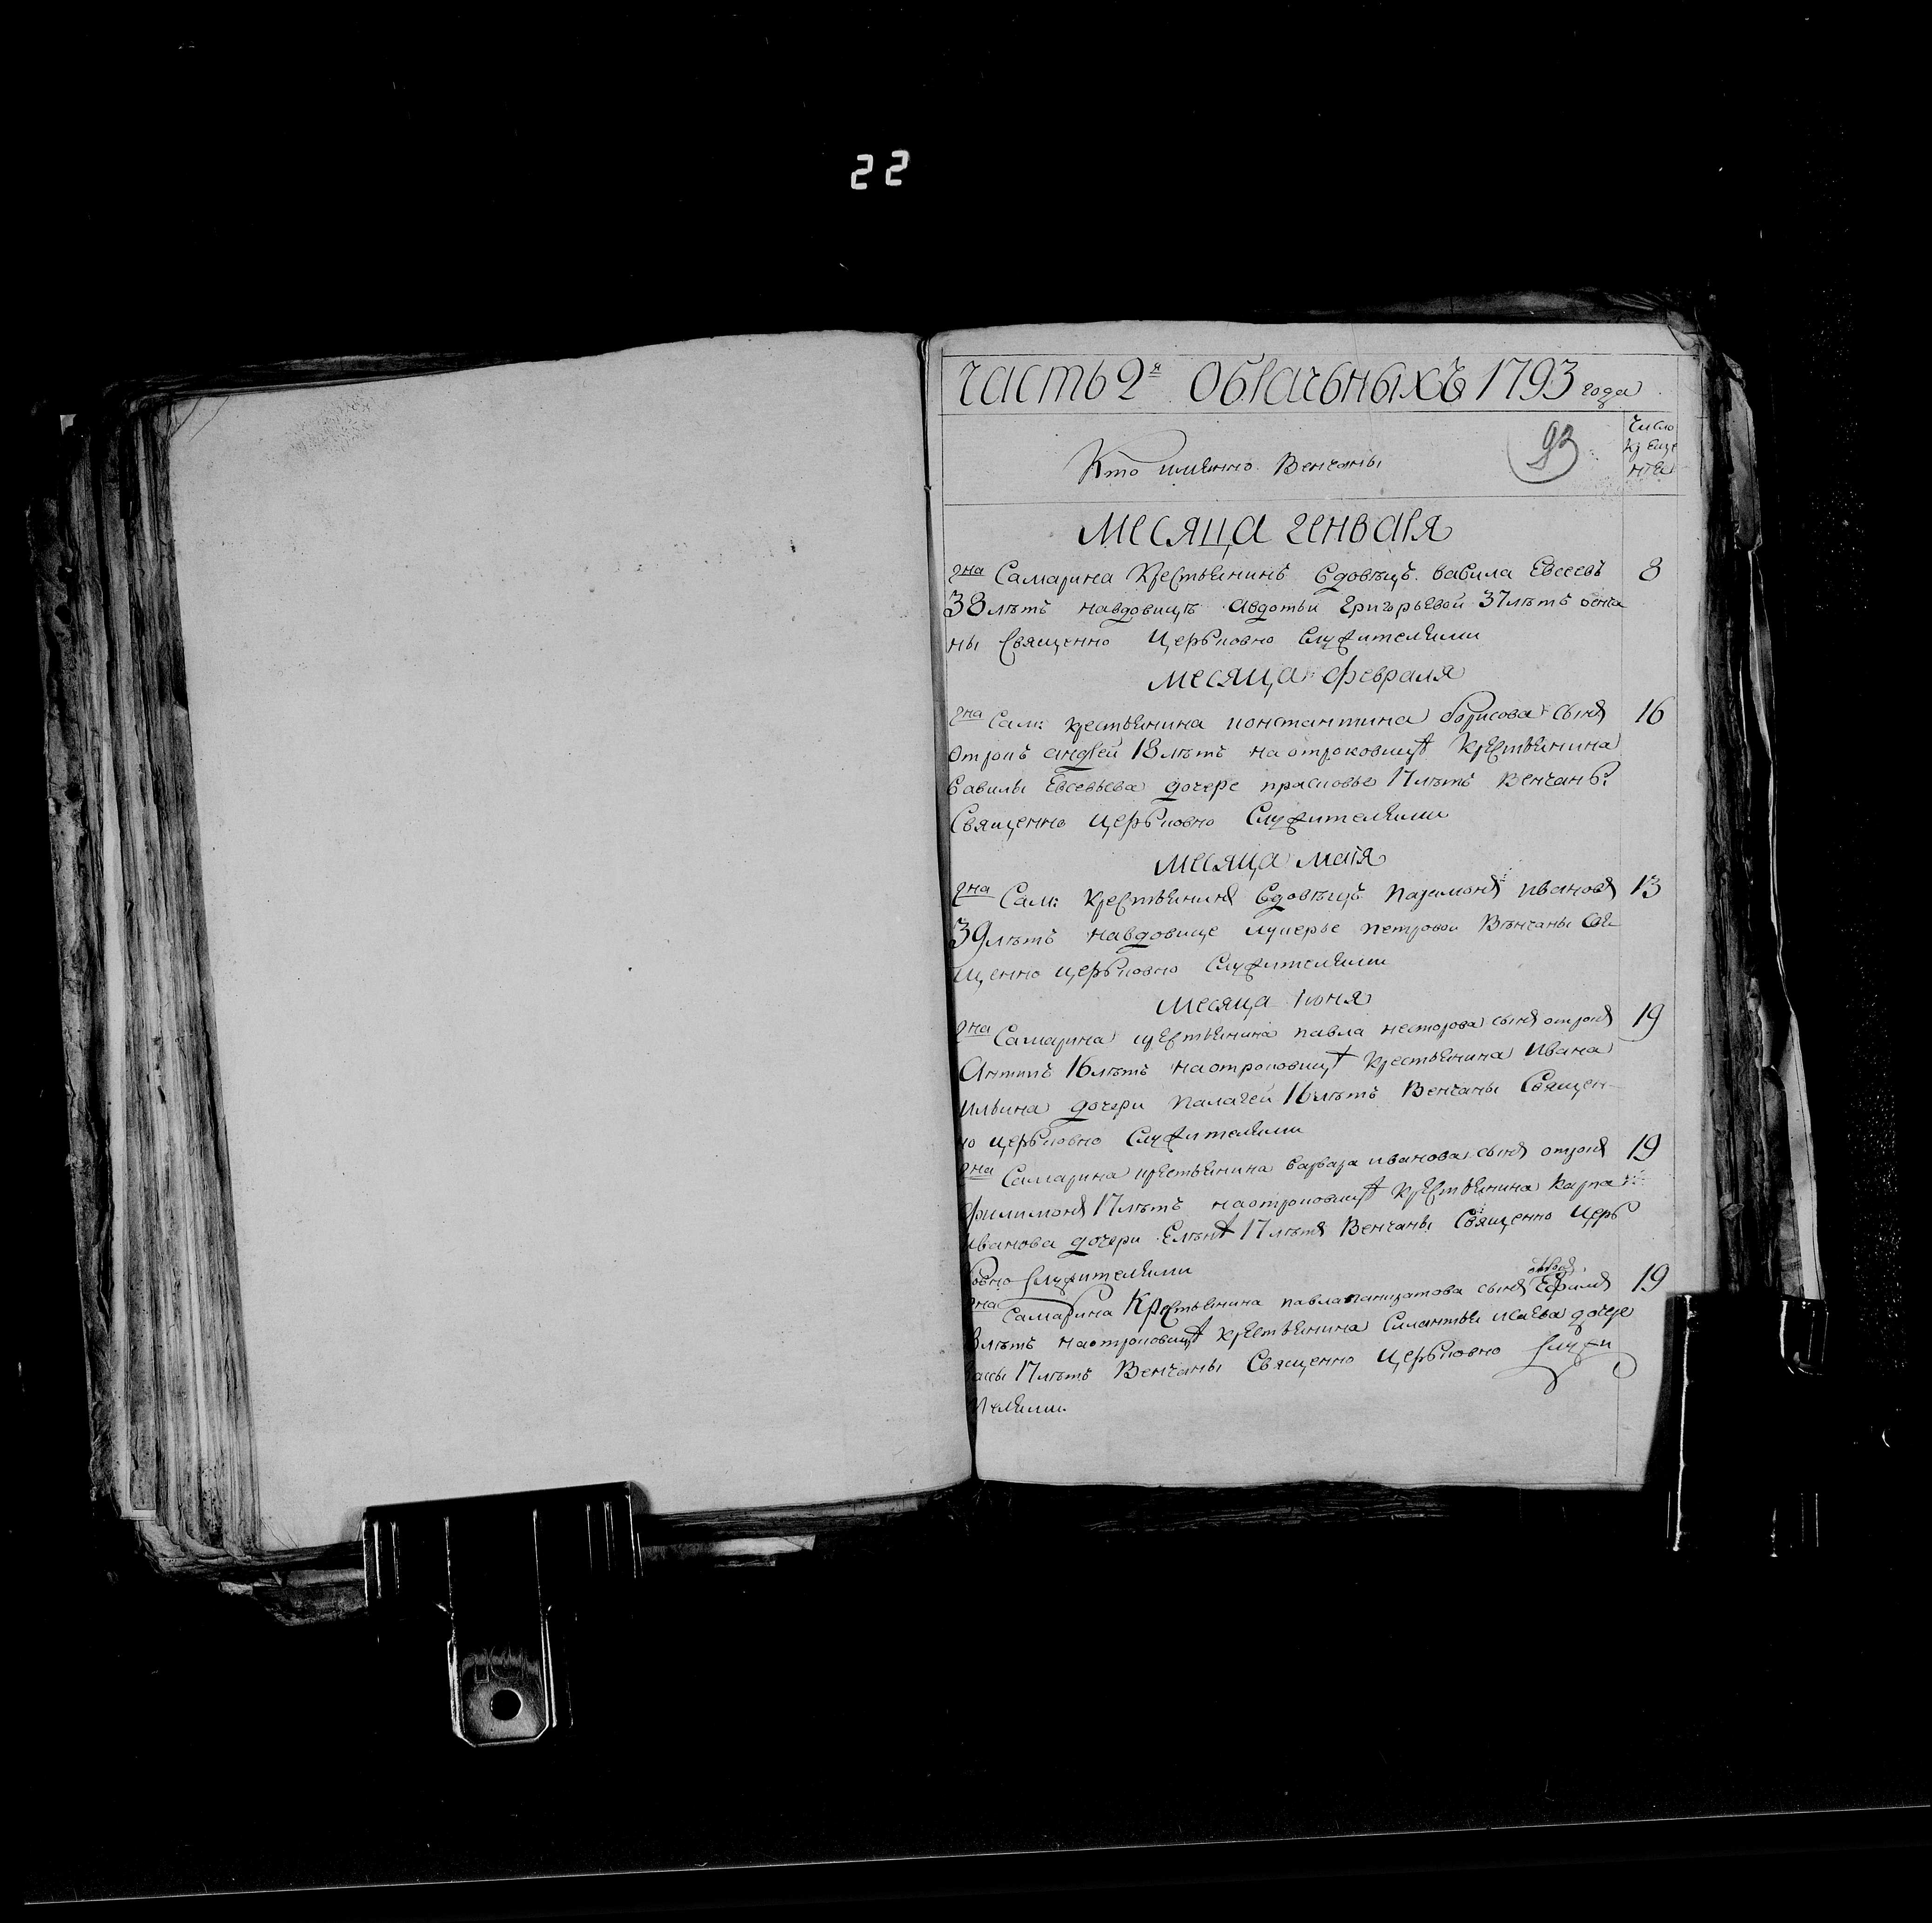 22
Часть 2я обрачьныхъ 1793 года
Кто имянно Венчаны
93
Число
крещенiе
Месяца генваря
гна Самарина Крестьянинъ вдовецъ вавила Евсеевъ 8
38 лѣтъ навдовицѣ Авдотьи Григорьевой 37 лѣтъ венча
ны Священно Церьковно Служителями
месяца февраля
гна Сам: крестьянина константина борисова сынъ 16
отрокъ андрей 18 лѣтъ наотроковицѣ Крестьянина
вавилы Евсевьева дочере прасковье 17 лѣтъ венчаны
Священно церьковно Служителями
месяца маiя
гна Сам: крестьянинъ вдовецъ парамонъ ивановъ 13
39 лѣтъ навдовице лукерье петровои Вѣнчаны Свя
щенно церьковно Служителями
месяца iюня
гна Самарина крестьянина павла несторова сынъ отрокъ 19
Антипъ 16 лѣтъ наотроковицѣ крестьянина Ивана
ильина дочери палагеи 16 лѣтъ Венчаны Священ
но церьковно Служителями
гна Самарина крестьянина иванова сынъ отрокъ 19
филимонъ 17 лѣтъ наотроковицѣ крестьянина карпа
иванова дочери Еленѣ 17 лѣтъ Венчаны Священно Церь
ковно Служителями
отрокъ
гна Самарина Крестьянина павла панкратова сынъ Ефимъ 19
лѣтъ наотроковицѣ крестьянина Силантьи исаева дочере
17 лѣтъ Венчаны Священно Церьковно Служи
телями.